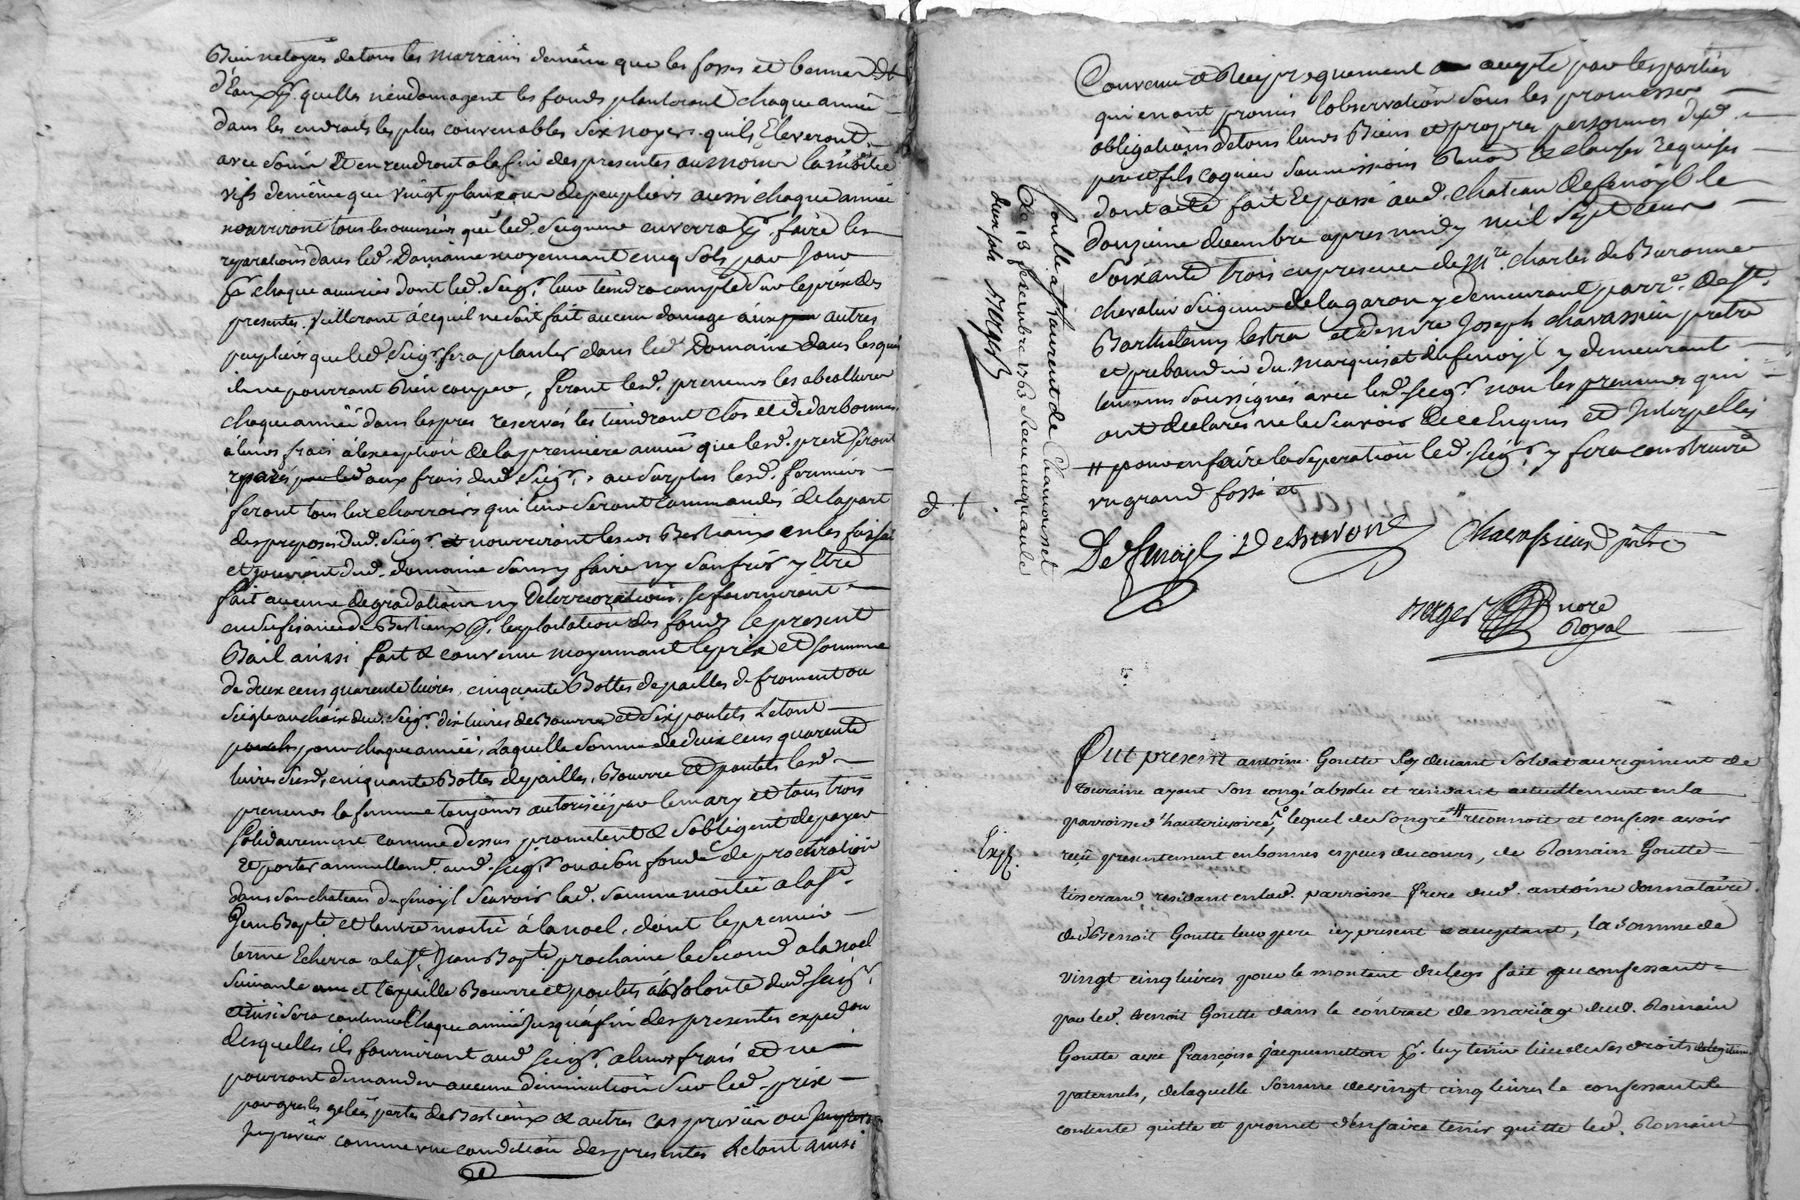 Bien netoyés de tous les marrains de même que les fosses et
d'Eaux pr. quelles n'endomagent les fonds planteront chaque année
dans les endroits les plus convenables six noyers quils Eleveront
avec soin Et en rendront a la fin des presentes au moins la moitié
vifs de même que vingt plançons de peupliers aussi chaque année
nourriront tous les ouvriers que led. Seigneur envoira pr. faire les
reparations dans led. Domaine moyennant cinq Sols par Jour
pr. chaque ouvrier dont led. Seigr. leur tiendra compte Sur le prix des
presentes. Veilleront à ce quil ne soit fait aucun domage aux autres
peupliers que led. Seigr. fera planter dans led. Domaine dans lesquels
ils ne pourront Rien couper, feront lesd. preneurs les
chaque année dans les prés reservés les tiendront clos et
à leurs frais à l'exception de la premiere année que lesd. prez seront
reparés aux frais dud. Seigr. au surplus lesd. fermiers
feront tous les charrois qui leur Seront Commandés de la part
des preposés dud. Seigr. nourriront leurs Bestiaux en les faisant
et jouiront dud. domaine sans y faire ny Souffrir y Etre
fait aucune degradation ny Deterioration. se fourniront
en suffisance de Bestiaux pr. l'exploitation des fonds le present
Bail aussi fait & convenu moyennant le prix et somme
de deux cens quarente livres, cinquante Bottes de pailles de froment ou
Seigle au choix dud. Seigr. dix livres de Beurre et Six poulets Letout
pour chaque année, Laquelle Somme de deux cens quarente
livres Susd. cinquante Bottes de pailles, Beurre et poulets lesd.
preneurs la femme toujours autorisée par le mary et tous trois
Solidairement comme dessus promettent & s'obligent de payer
et porter annuellemt. aud. Seigr. ou a son fondé de procuration
dans son chateau du fenoyl Scavoir lad. Somme moitié a la St.
Jean Bapte et l'autre moitié à la noel, dont le premier
terme Echerra a la St. Jean Bapte prochaine le Second a la noel
Suivante et la paille Beurre et poulets à Volonté dud. Seigr.
et ainsi Sera continué Chaque année Jusqu'a fin des presentes expedon
desquelles ils fourniront aud. Seigr. a leurs frais et ne
pourront demander aucune diminution Sur led. prix
par gresles gelées pertes de Bestiaux & autres Cas prevûs ou
Imprevûs comme une condition des presentes Letout ainsi
Convenu & Reciproquement accepté par les parties
qui en ont promis l'observation Sous les promesses
obligations de tous leurs Biens et propres personnes desd.
pere et fils coquier Soumissions Renon. & clauses requises
dont acte fait Et passé aud. chateau de fenoyl le
douzieme decembre apres midy mil Sept cens
Soixante trois en presence de Mre. Charles de Buronne
chevalier Seigneur de lagaron y demeurant parre. de St.
Barthelemy lestra et de mre Joseph chavassieu pretre
et prebandier du marquisat de fenoyl y demeurant
temoins Soussignés avec led. Seigr. non les preneurs qui
ont declarés ne le Scavoir De ce Enquis et Interpellés
# pour en faire la Separation led. Seigr. y fera construire
un grand fossé et
De fenoyl Deburonne Chavassieu ptre
Berger nore
Royal
Controllé a St Laurent de Chamousset
Le 13 decembre 1763
Berger
Fut present antoine Goutte Cy devant Soldat au regiment de
touraine ayant Son congé absolu et residant actuellement en la
parroisse d'hauterivoire, lequel de Son gré # reconnoit et confesse avoir
reçû presentement en bonnes especes du cours, de Romain Goutte
Exp.
tisserand residant en lad. parroisse frere dud. antoine donnataire
de Benoit Goutte leur pere icy present & acceptant, la Somme de
vingt cinq livres pour le montant du legs fait au confessant
par led. Benoit Goutte dans le contract de mariage dud. Romain
Goutte avec françoise Jacquemetton pr. luy tenir lieu de Ses droits
paternels, de laquelle Somme de vingt cinq livres le confessant Se
contente quitte et promet d'en faire tenir quitte led. Romain